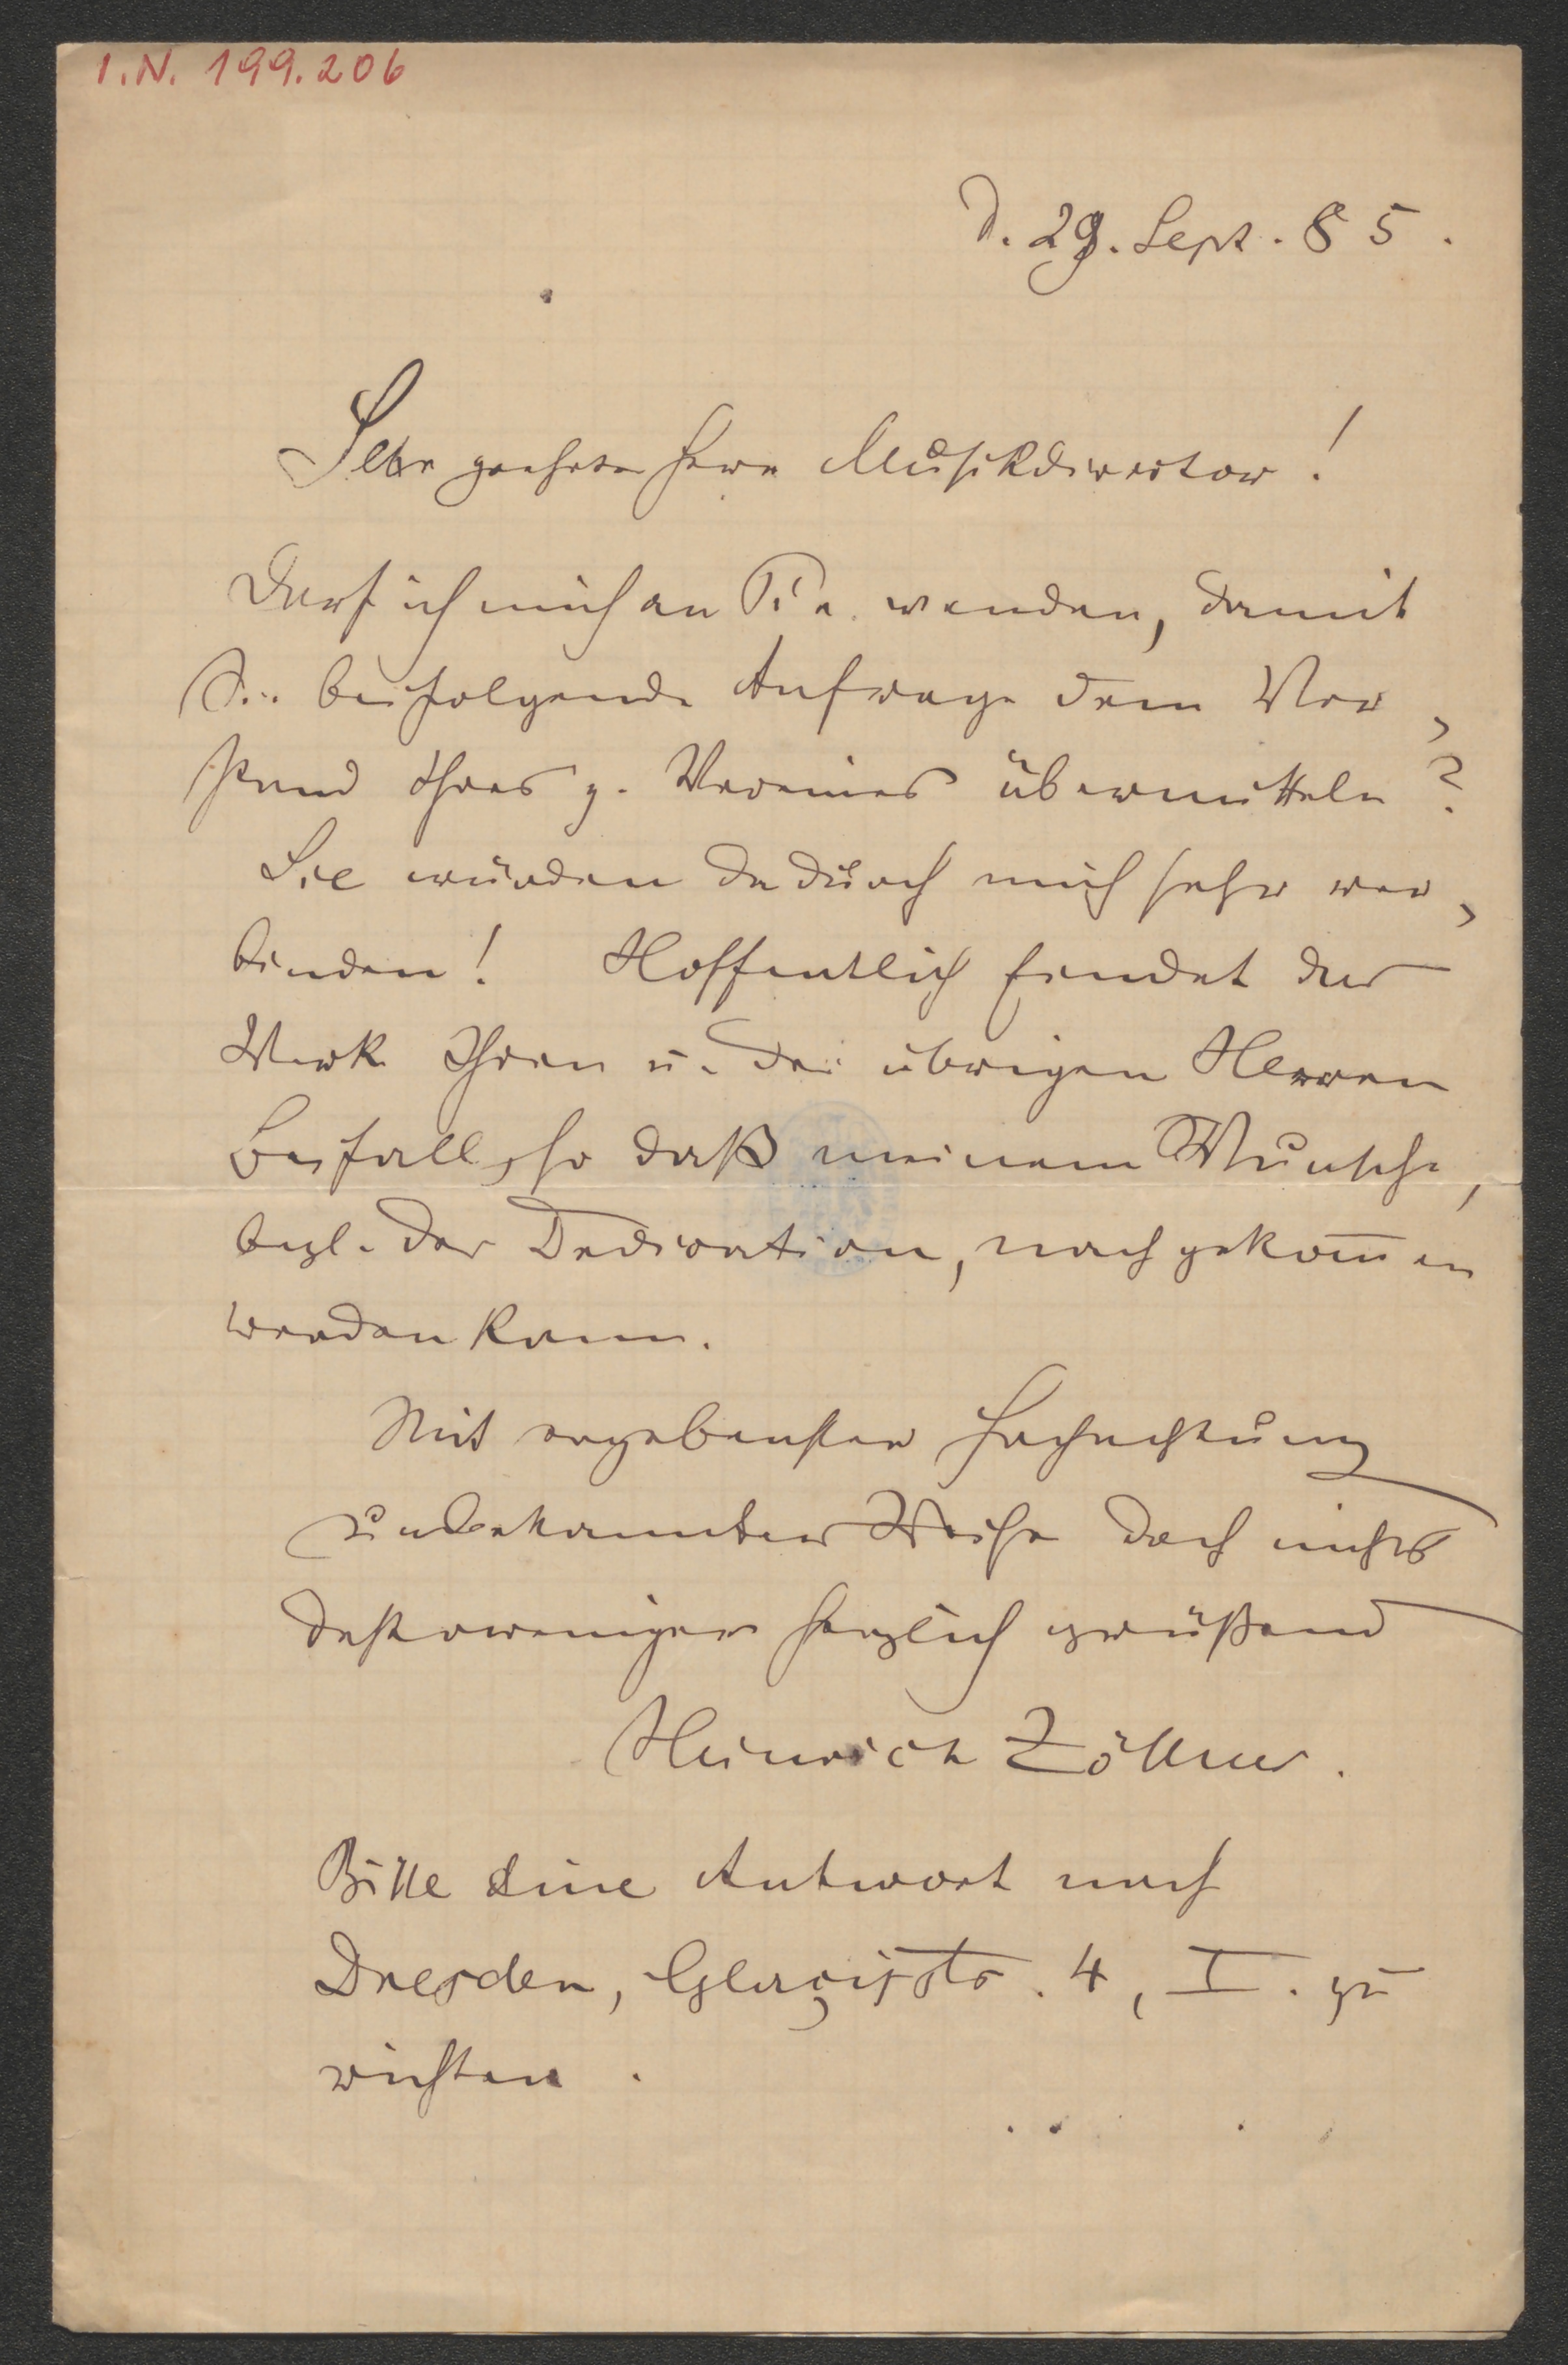 I.N. 199.206
D. 29. Sept. 85.
Sehr geehrter Herr Musikdirector!
Darf ich mich an Sie wenden, damit
Sie beifolgende Anfrage dem Vor-
stand Ihres g. Vereines übermitteln?
Sie würden dadurch mich sehr ver-
binden! Hoffentlich findet das
Werk Ihren u. der übrigen Herren
Beifall, so daß meinem Wunsche,
bezl. der Dedication, nachgekom̅en
werden kann.
Mit ergebenster Hochachtung
unbekannter Weise doch nichts
destoweniger herzlich grüßend
Heinrich Zöllner.
Bitte eine Antwort nach
Dresden, Glacisstr. 4, I. zu
richten.